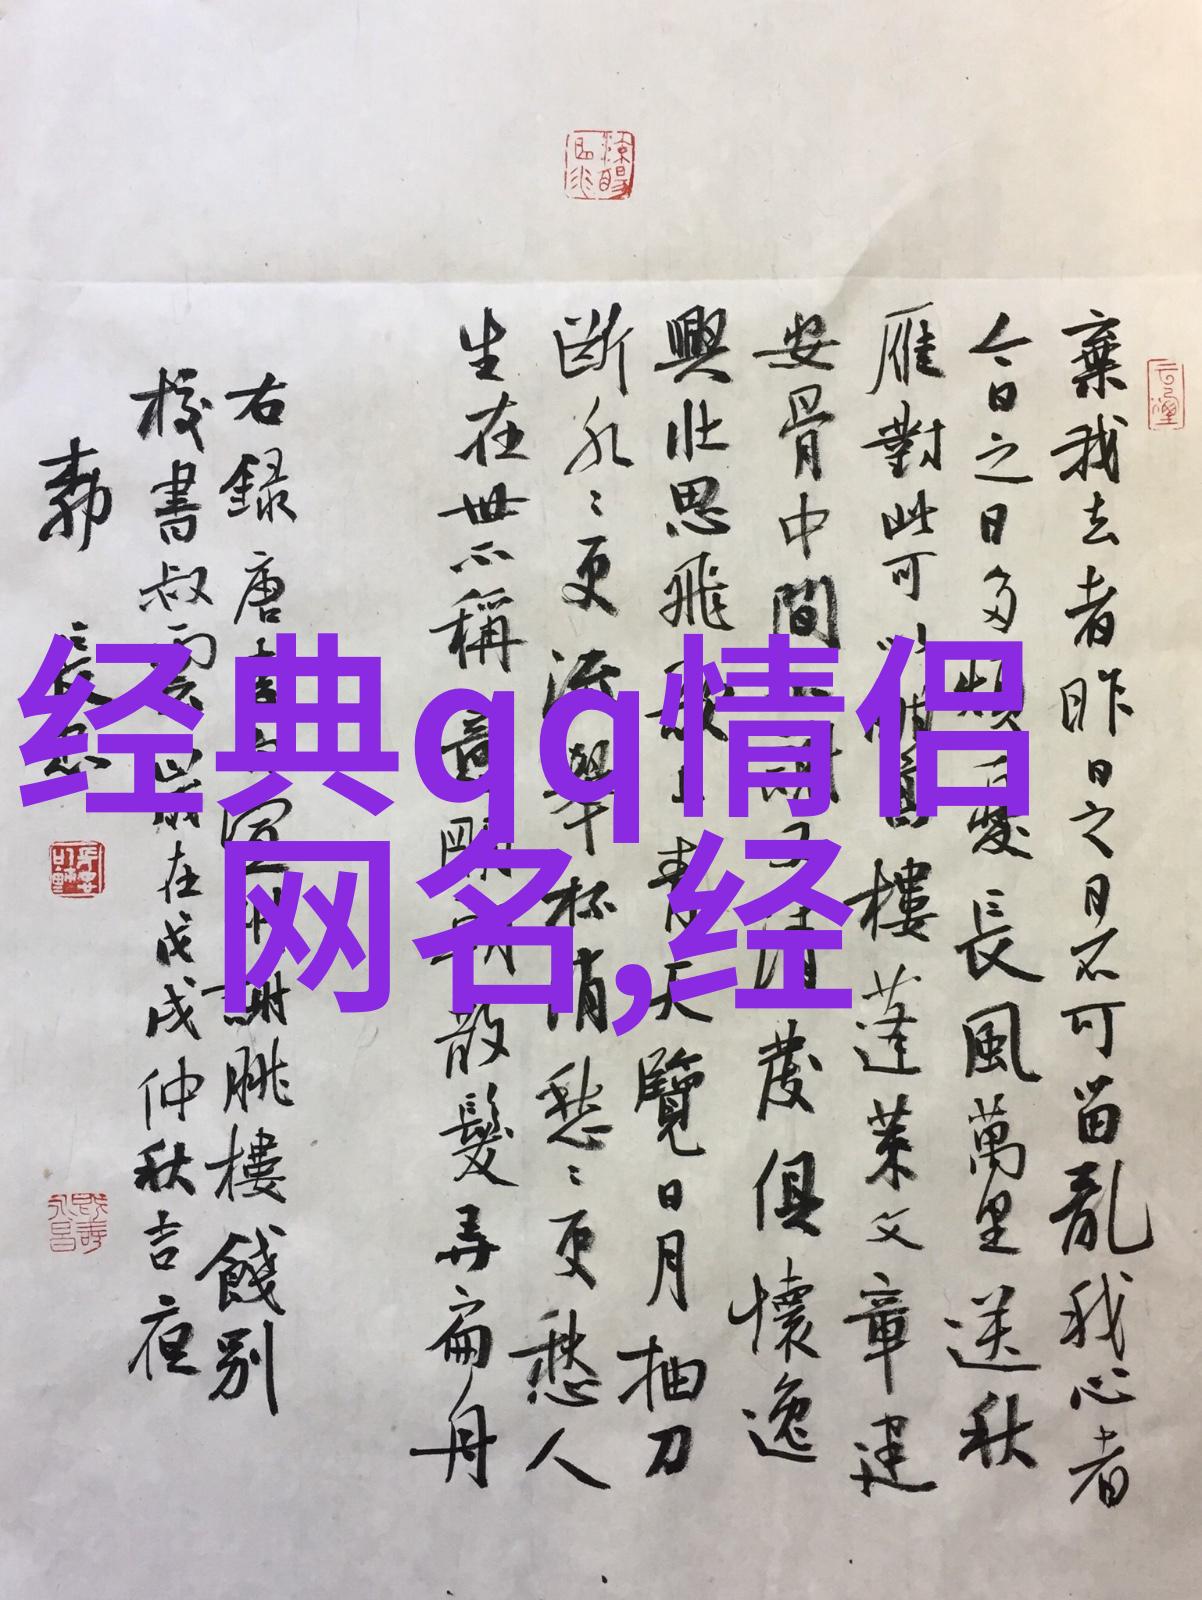 棄我去者昨日之日不可留亂我心者
今日之日多煩憂長風萬里送秋
雁對此可以酣高樓蓬萊文章建
安骨中間小謝又清發俱懷逸
興壯思飛欲上青天覽日月抽刀
斷水〻更流舉杯消愁〻更愁人
生在世不稱意明朝散髮弄扁舟
右録唐李白宣州謝朓樓餞別
校書叔雲 歲在戊戌仲秋吉夜
经典qq情侣
网名,经